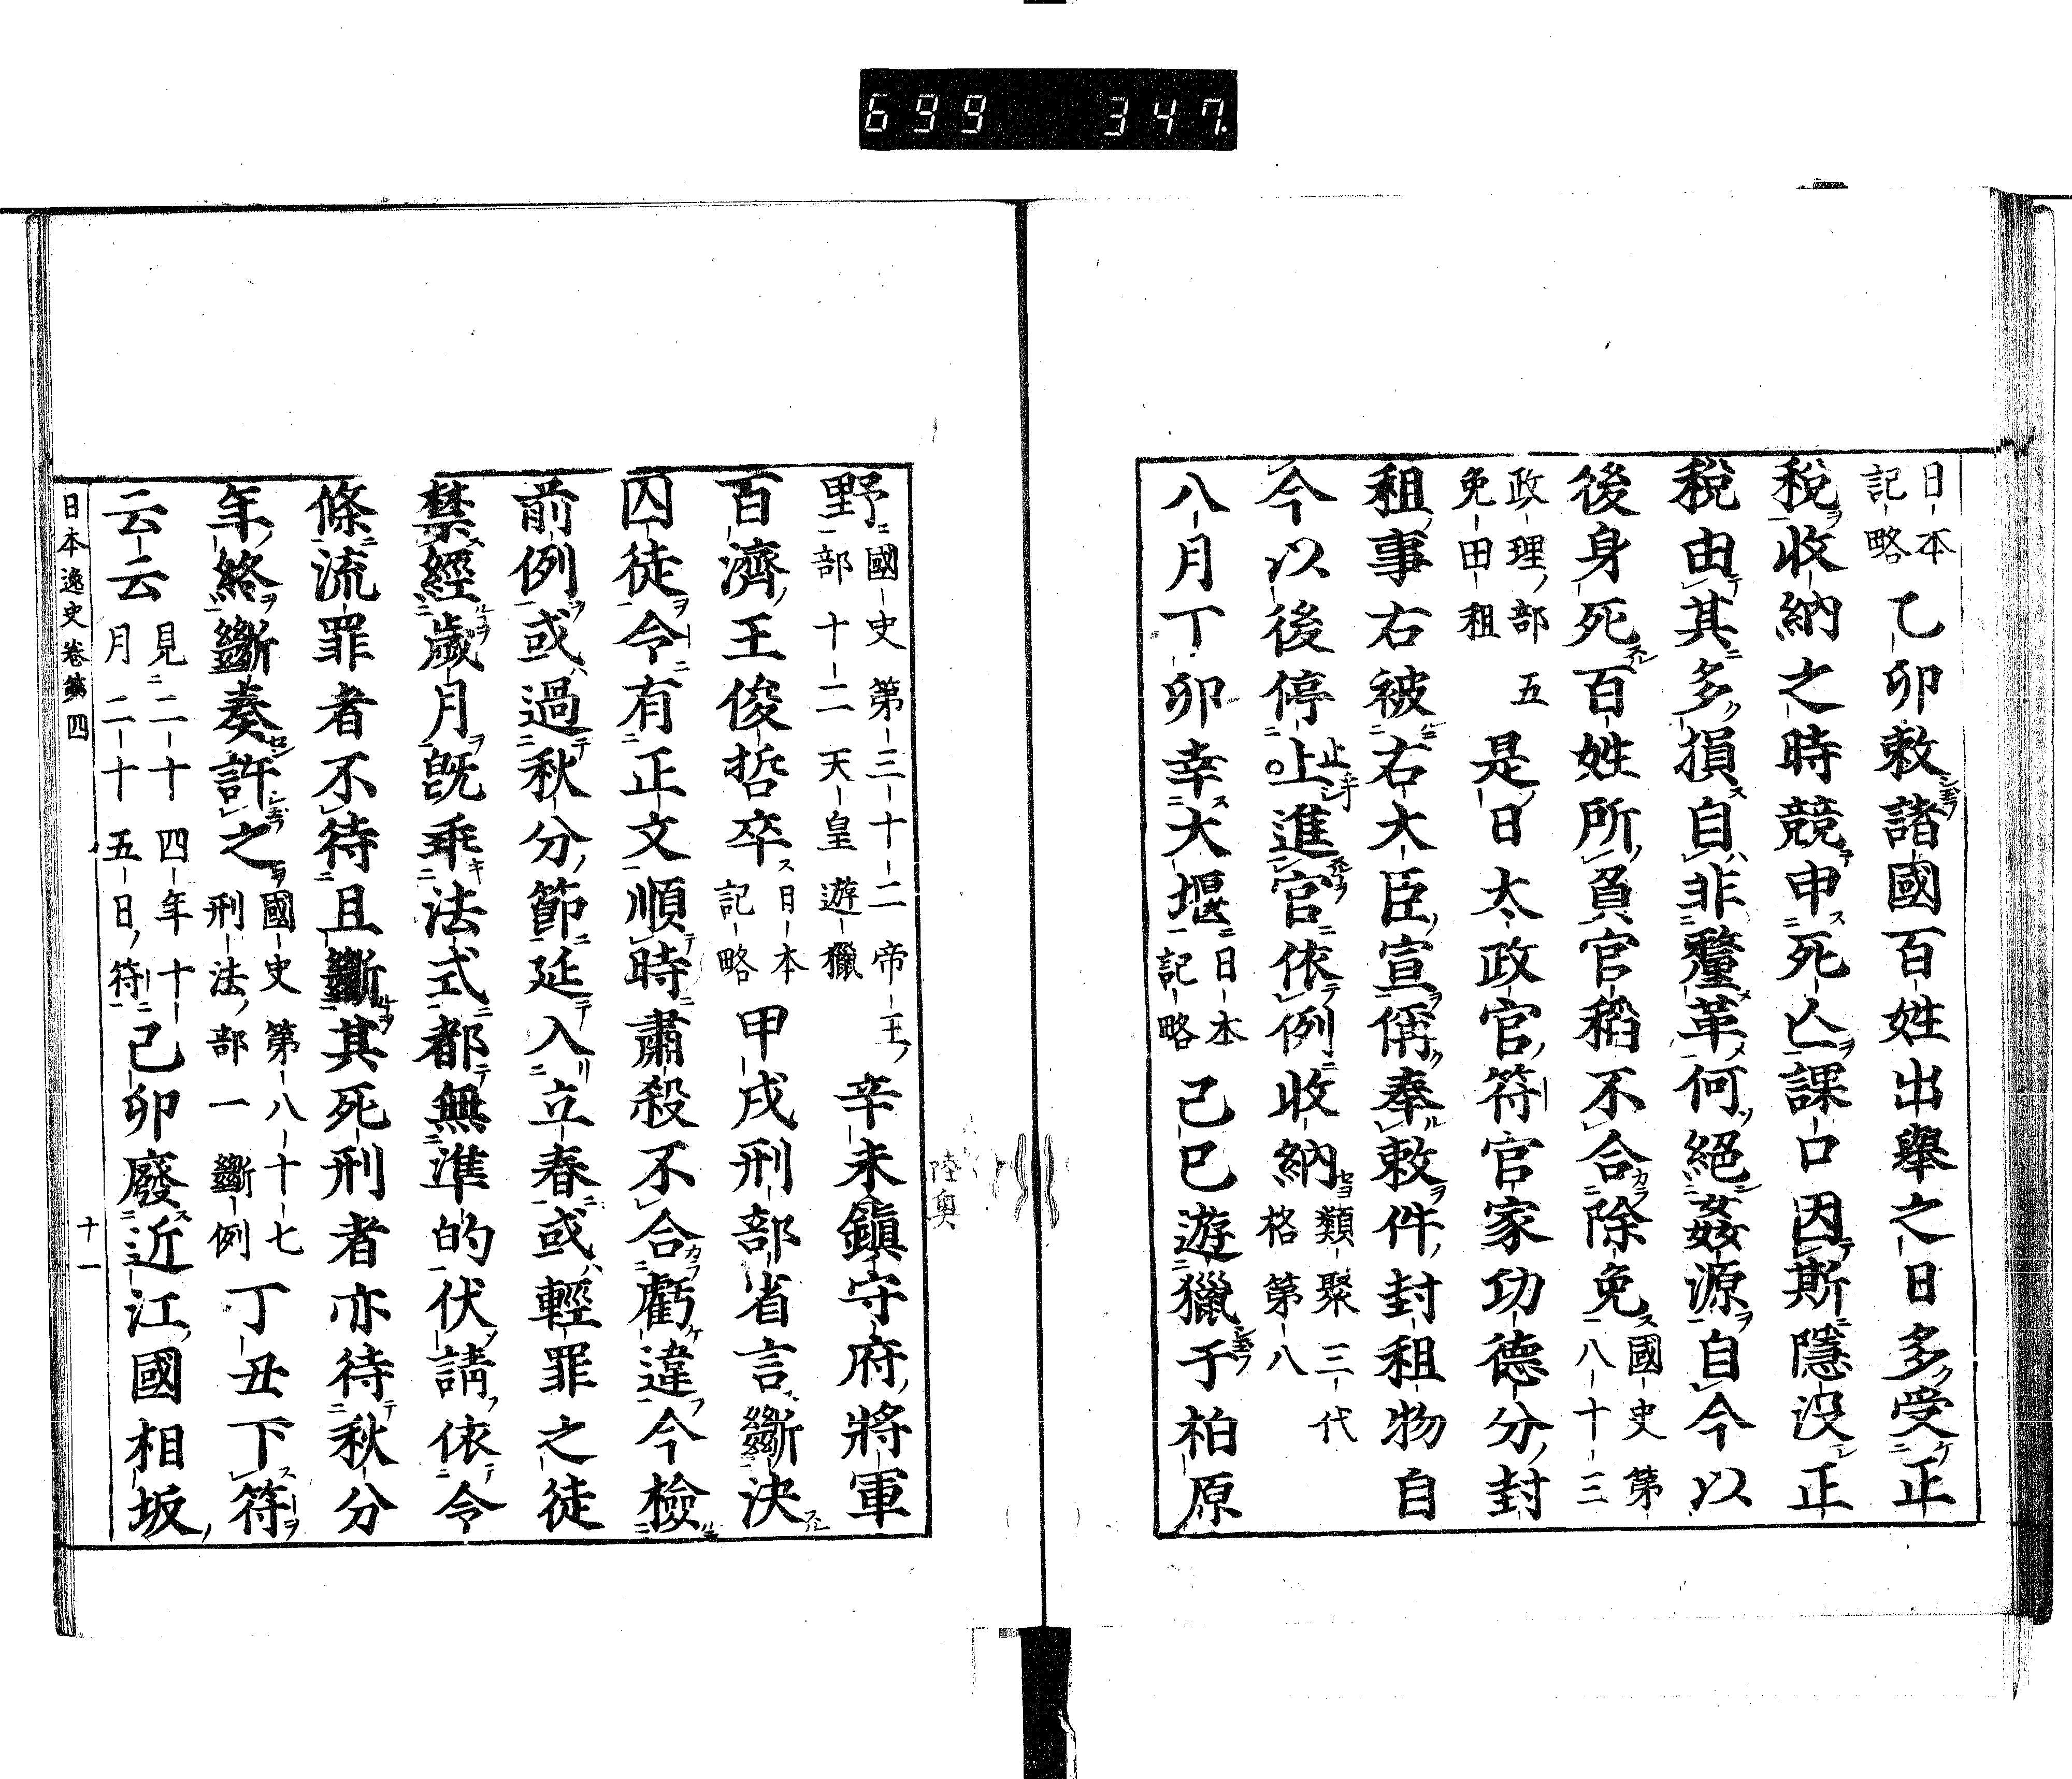 699 347.
日本記略 乙卯敕諸國百姓出舉之日多受正
稅收納之時競申死亡課口因斯隱沒正
稅由其多損自非釐革何絕姦源自今以
後身死百姓所負官稻不合除免國史第八十三
政理部五免田租 是日太政官符官家功德分封
租事右被右大臣宣偁奉敕件封租物自
今以後停止進官依例收納類聚三代格第八
八月丁卯幸大堰日本記略 己巳遊獵于柏原
野國史第三十二帝王部十二天皇遊獵 辛未鎮守府將軍
陸奧
百濟王俊哲卒日本記略 甲戌刑部省言斷決
囚徒令有正文順時肅殺不合虧違今檢
前例或過秋分節延入立春或輕罪之徒
禁經歲月既乖法式都無準的伏請依令
條流罪者不待且斷其死刑者亦待秋分
年終斷奏許之國史第八十七刑法部一斷例 丁丑下符
云云見二十四年十月二十五日符 己卯廢近江國相坂
日本逸史卷第四 十一